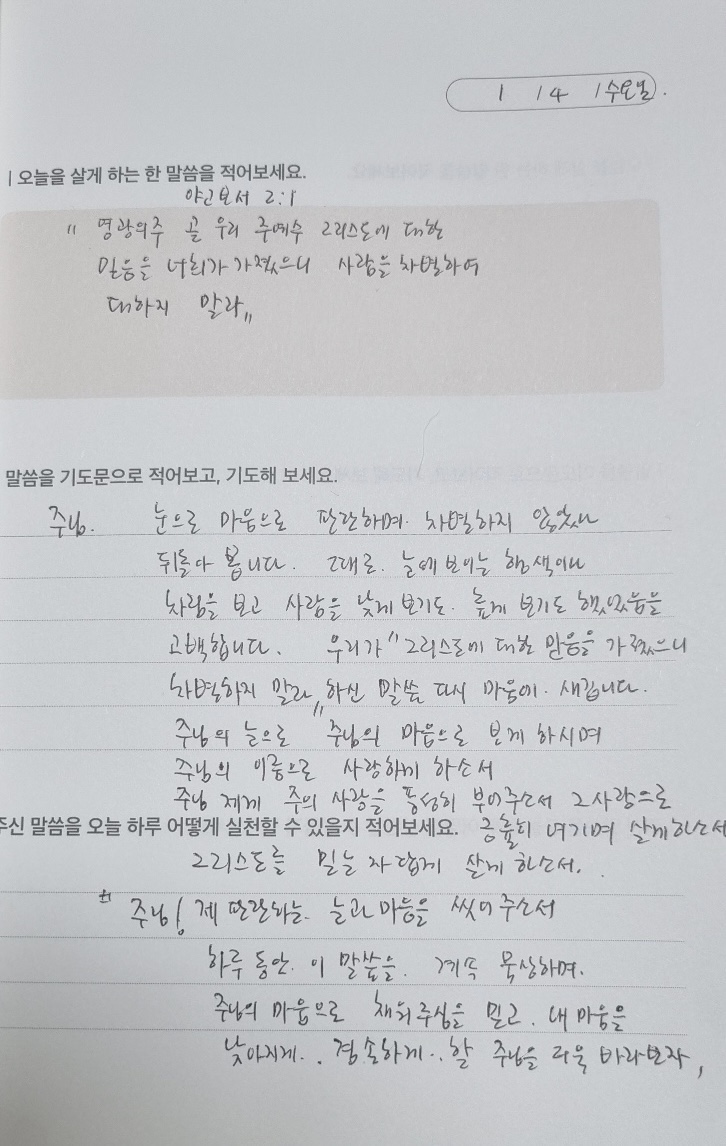 1 / 4 / 수요일.
| 오늘을 살게 하는 한 말씀을 적어보세요.
야고보서 2:1
" 영광의주 곧 우리 주예수 그리스도에 대한
믿음을 너희가 가졌으니 사람을 차별하여
대하지 말라"
말씀을 기도문으로 적어보고, 기도해 보세요.
주님. 눈으로 마음으로 판단하며. 차별하지 않았나
뒤돌아 봅니다. 그때로. 눈에 보이는 행색이나
차림을 보고 사람을 낮게 보기도. 높게 보기도 했었음을
고백합니다. 우리가 "그리스도에 대한 믿음을 가졌으니
차별하지 말라" 하신 말씀 다시 마음에. 새깁니다.
주님의 눈으로 주님의 마음으로 보게 하시며
주님의 이름으로 사랑하게 하소서
주님 제게 주의 사랑을 풍성히 부어주소서 그사랑으로
주신 말씀을 오늘 하루 어떻게 실천할 수 있을지 적어보세요. 긍휼히 여기며 살게하소서
그리스도를 믿는 자 답게 살게 하소서.
주님! 제 판단하는. 눈과 마음을 씻어 주소서
하루 동안. 이 말씀을. 계속 묵상하며.
주님의 마음으로 채워주심을 믿고. 내 마음을
낮아지게.. 겸손하게.. 할 주님을 더욱 바라보자,